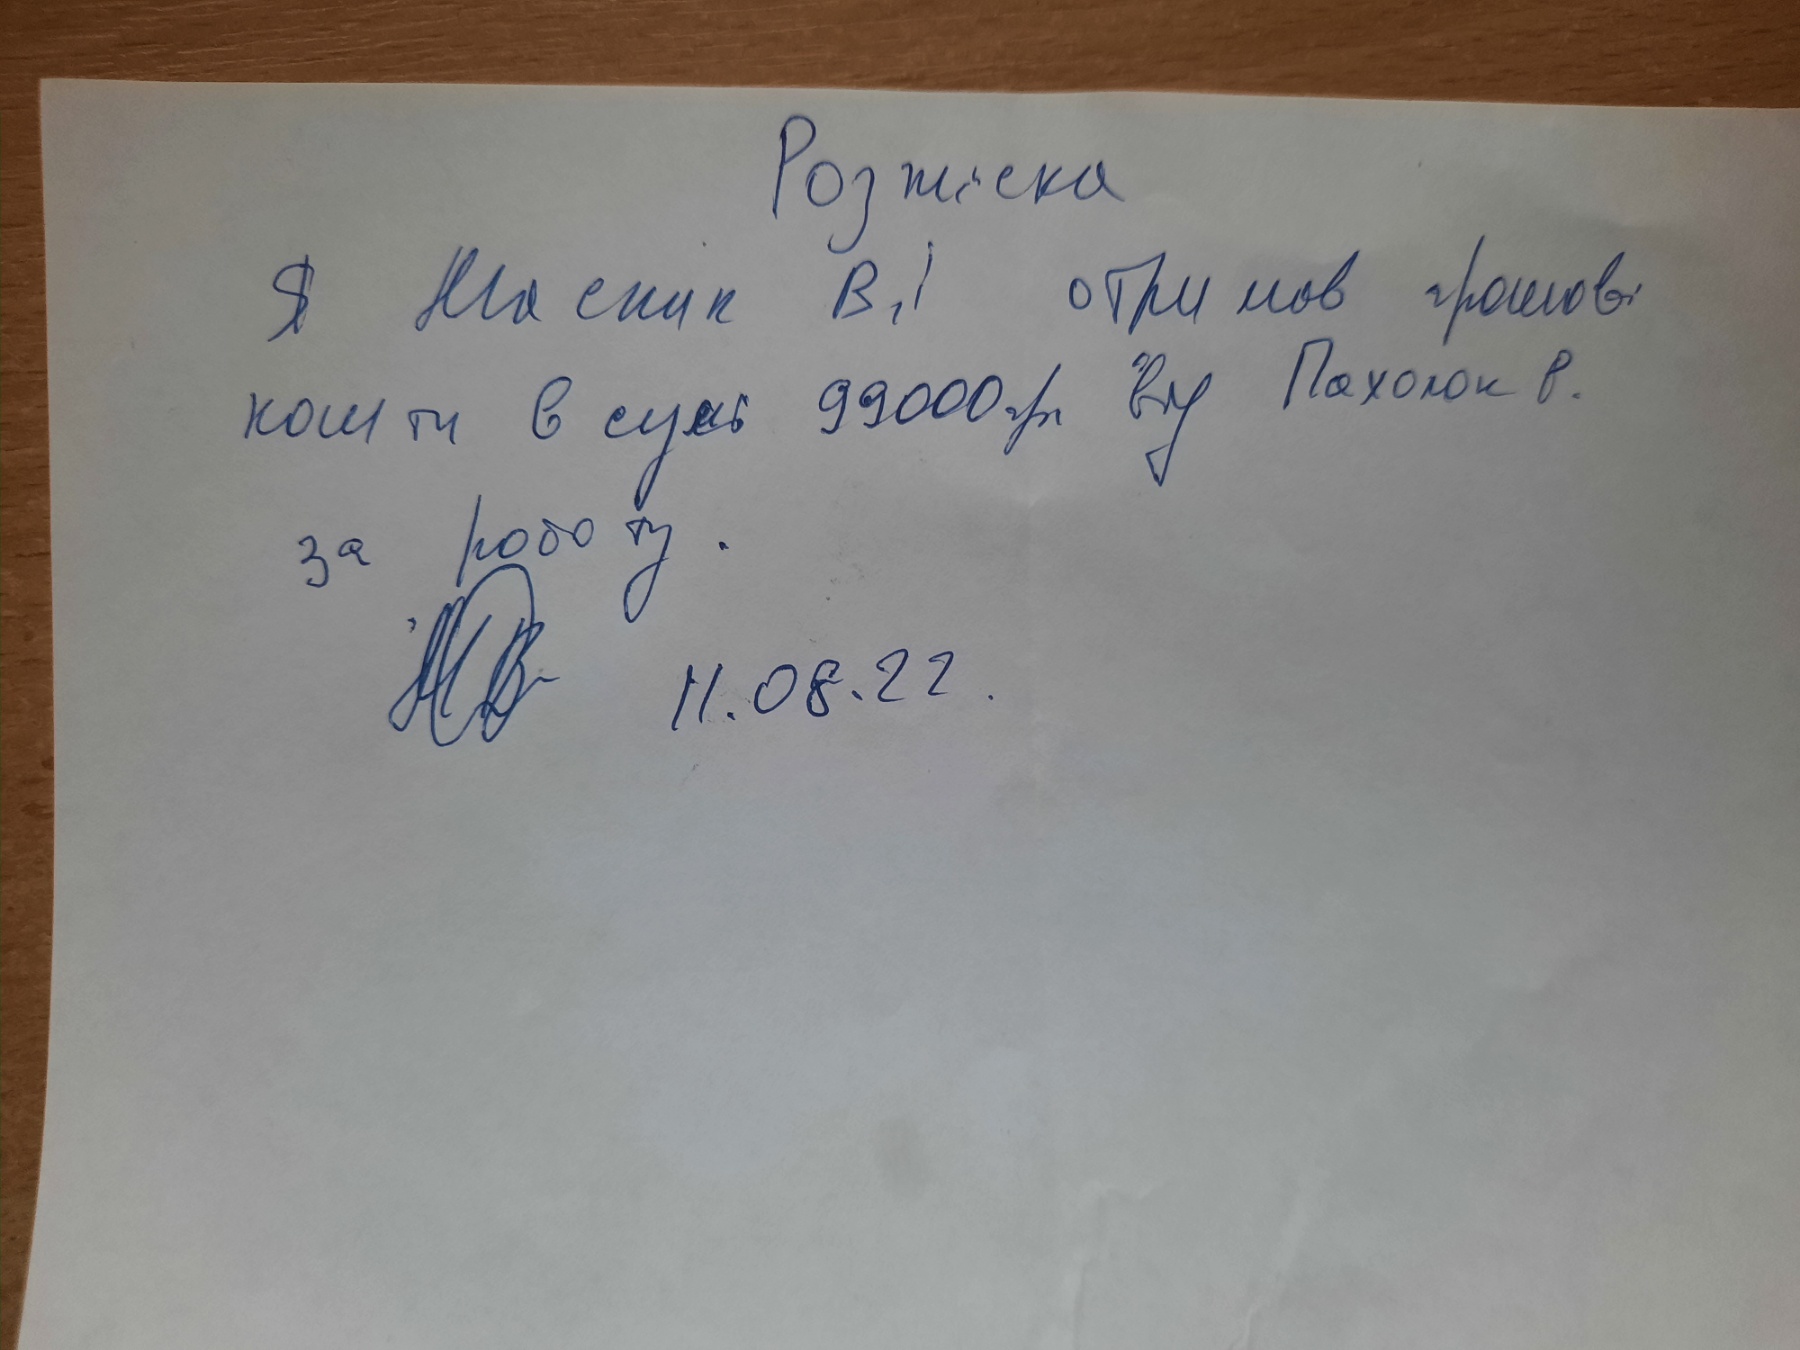 Розписка
Я Масник В.І отримов грошові
кошти в сумі 99000грн від Пахолок В.
за роботу.
11.08.22.